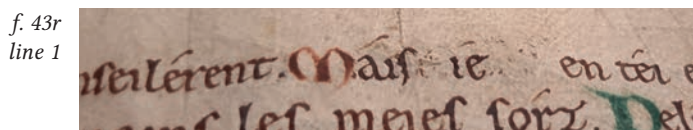 f. 43r
line 1
nseilérent. Mais ie en tei
les meies sorz. Del